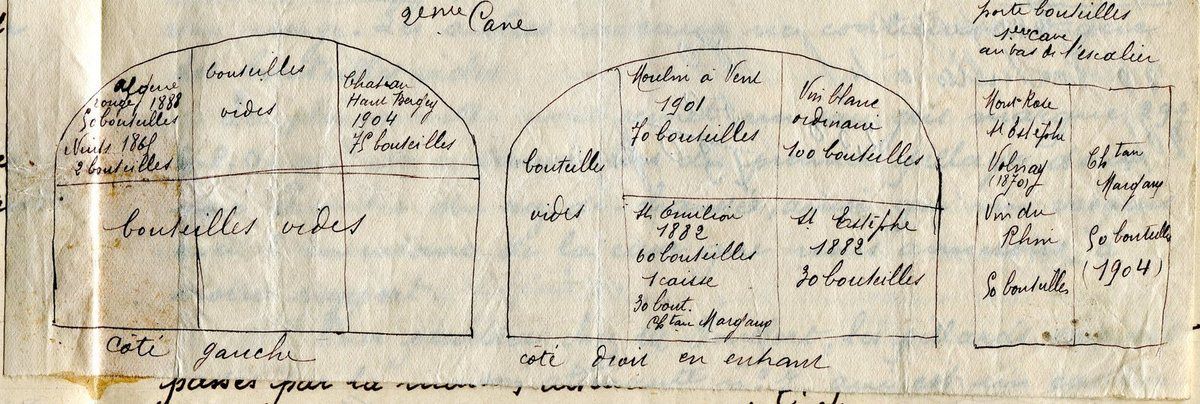 2ème Cave
Algérie
rouge 1888
50 bouteilles
Nuits 1865
2 bouteilles
bouteilles
vides
Chateau
Haut Bergey
1904
75 bouteilles
bouteilles vides
côté gauche
bouteilles
vides
Moulin à Vent
1901
70 bouteilles
Vin blanc
ordinaire
100 bouteilles
St Emilion
1882
60 bouteilles
1 caisse
30 bout.
Chtau Margaux
St Estèphe
1882
30 bouteilles
côté droit en entrant
porte bouteilles
1ere cave
au bas de l'escalier
Mont-Rose
St Estèphe
Volnay
(1870)
Vin du
Rhin
50 bouteilles
Chtau
Margaux
50 bouteilles
(1904)
passés par la